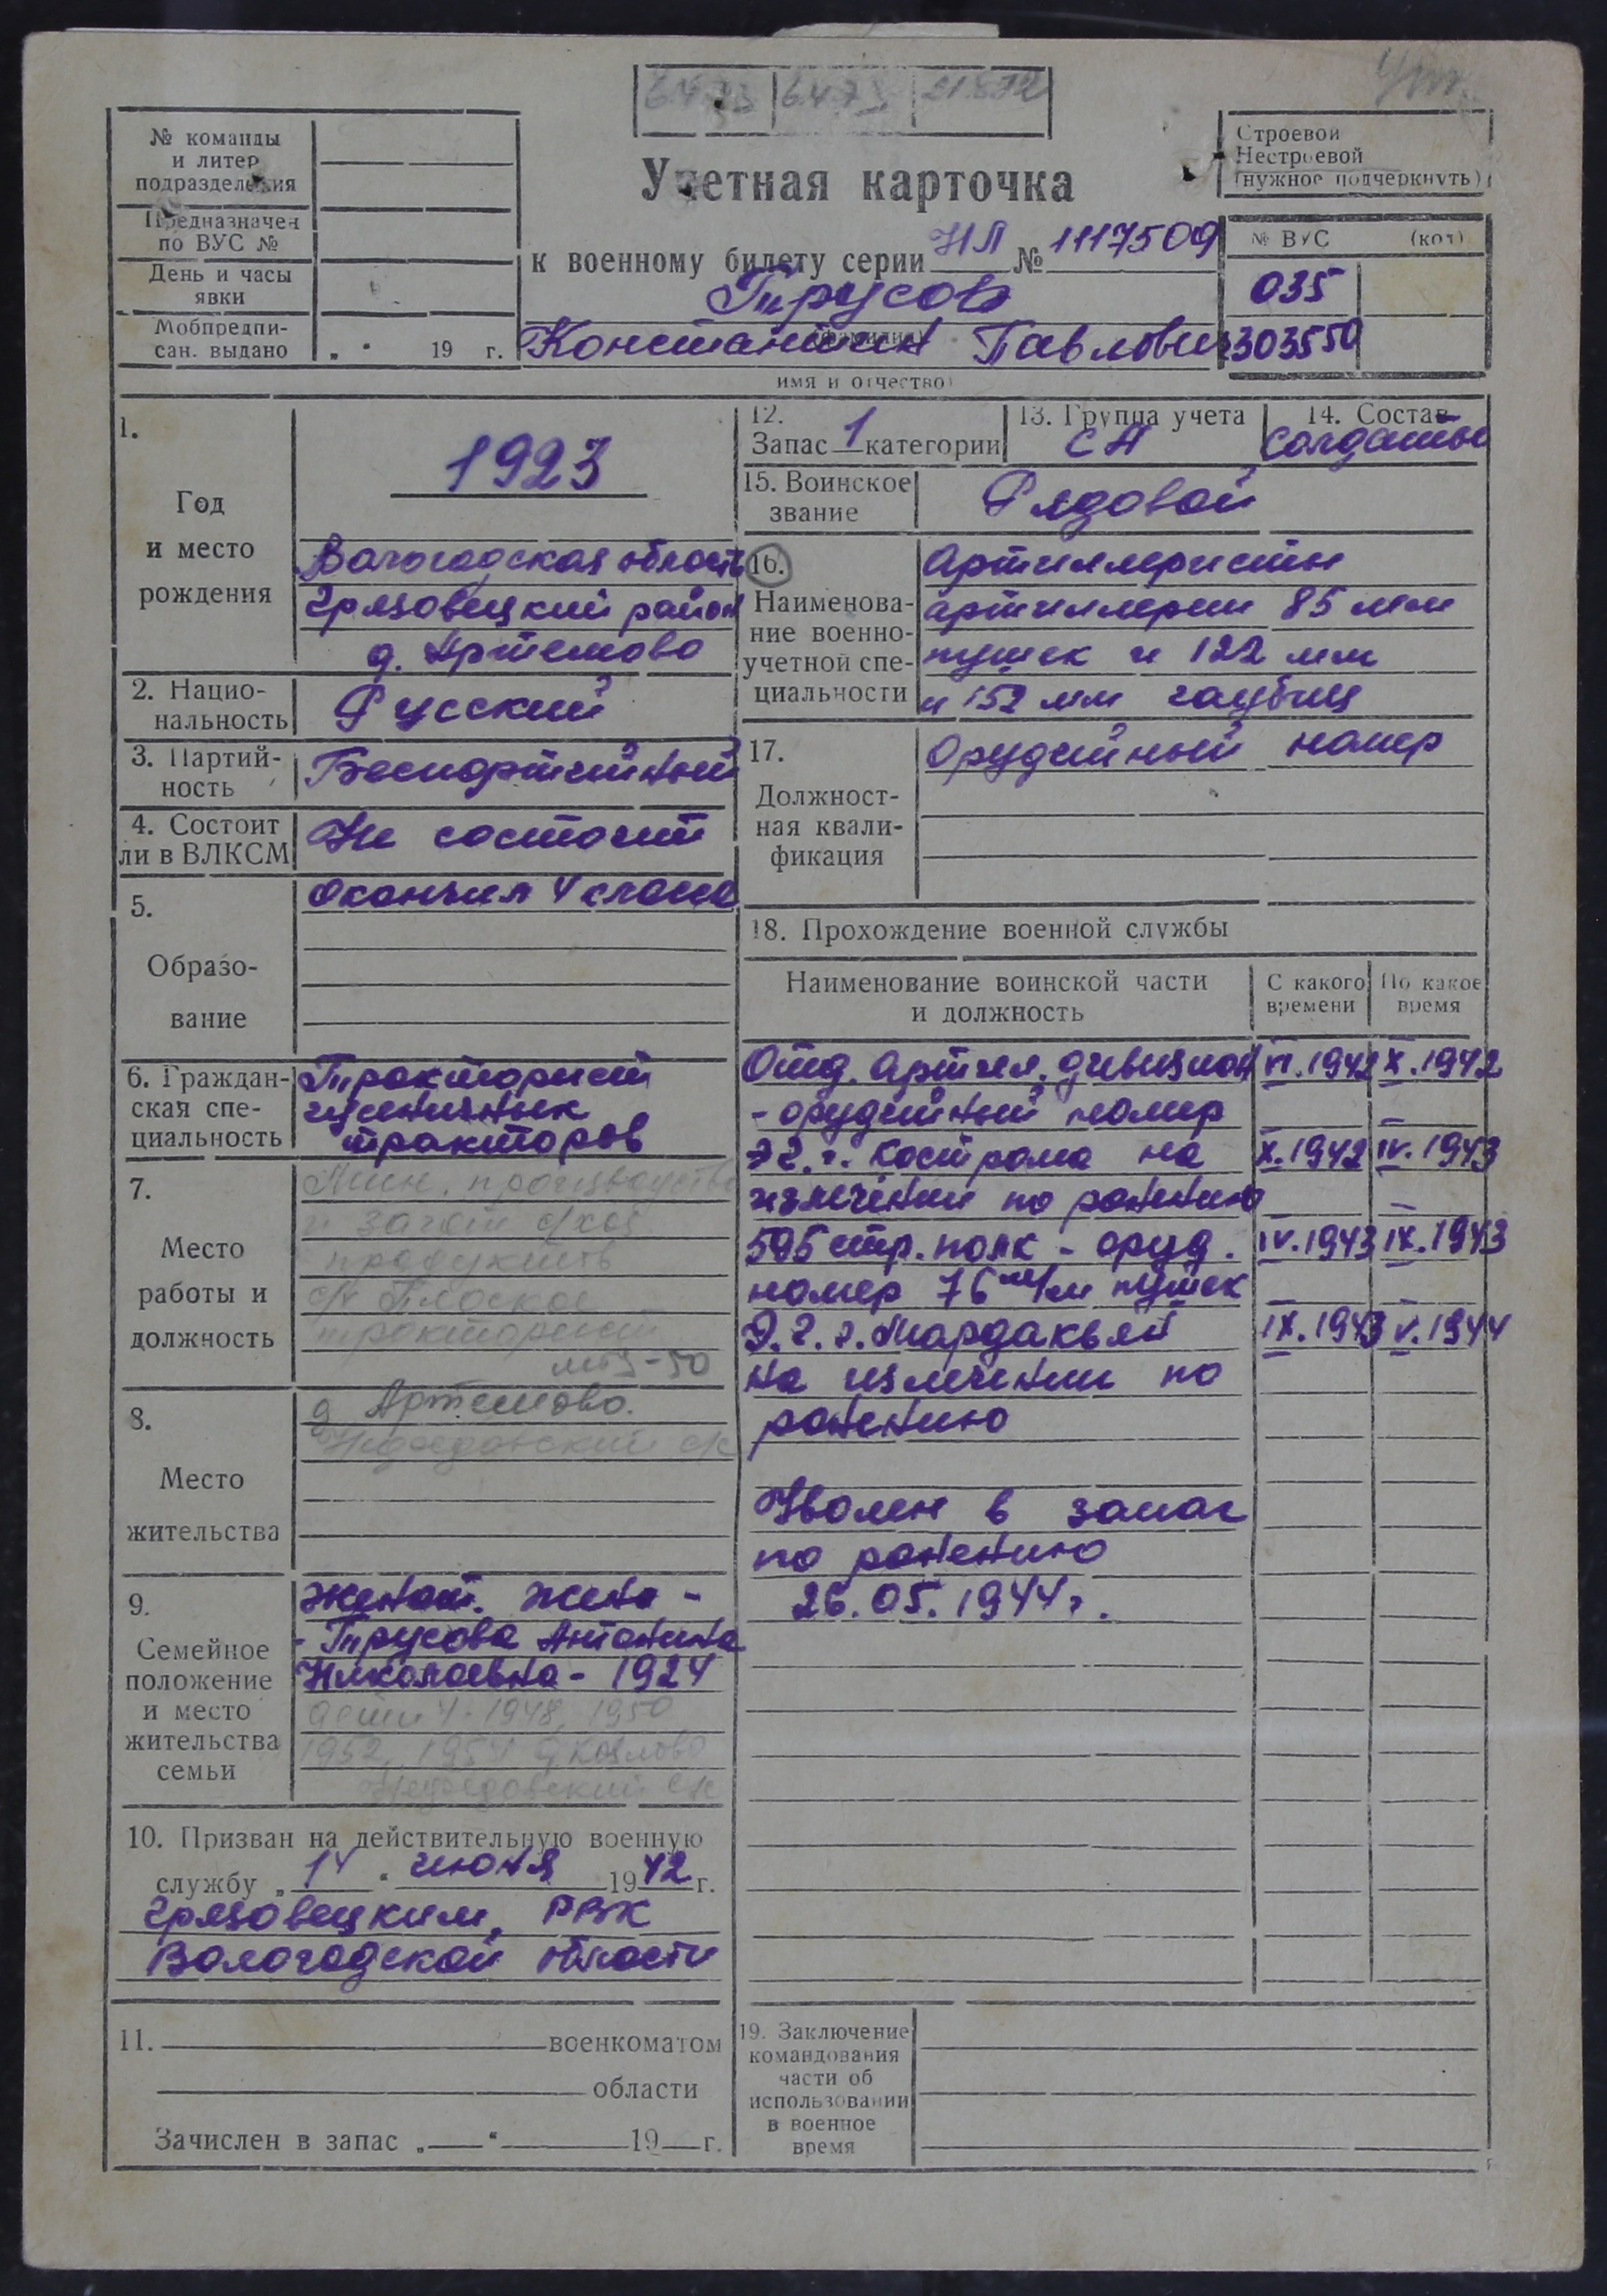 6473 6473
№ команды
и литер
подразделения
Предназначен
по ВУС №
День и часы
явки
Мобпредпи-
сан. выдано „ “ 19 г.
Учетная карточка
к военному билету серии НЛ № 1117509
Трусов
(фамилия)
Константин Павлович
(имя и отчество)
Строевой
Нестроевой
(нужное подчеркнуть)
№ ВУС (кот)
035
303550
1.
Год
и место
рождения
1923
Вологодская область
Грязовецкий район
д. Артемово
2. Нацио-
нальность
Русский
3. Партий-
ность
Беспартийный
4. Состоит
ли в ВЛКСМ
Не состоит
5.
Образо-
вание
Окончил 4 класса
6. Граждан-
ская спе-
циальность
Тракторист
гусеничных
тракторов
7.
Место
работы и
должность
Мин. производства
и загот с/хоз
продуктов
с/х Плоское
тракторист
МТЗ-50
8.
Место
жительства
д Артемово.
9.
Семейное
положение
и место
жительства
семьи
Женат. Жена -
- Трусова Антонина
Николаевна - 1924
дети 4 - 1948, 1950
1952, 1954 д Козлово
10. Призван на действительную военную
службу „14“ июня 1942 г.
Грязовецким РВК
Вологодской области
11. военкоматом
области
Зачислен в запас „ “ 19 г.
12.
Запас 1 категории
13. Группа учета
СА
14. Состав
Солдаты
15. Воинское
звание
Рядовой
16.
Наименова-
ние военно-
учетной спе-
циальности
Артиллеристы
артиллерии 85 мм
пушек и 122 мм
и 152 мм гаубиц
17.
Должност-
ная квали-
фикация
Орудейный номер
18. Прохождение военной службы
Наименование воинской части
и должность
С какого
времени
По какое
время
Отд. Артил. дивизион VI.1942 X.1942
- орудейный номер
ЭГ. г. Кострома на X.1942 IV.1943
излечении по ранению
595 стр. полк - оруд. IV.1943 IX.1943
номер 76 м/м пушек
Э.Г. г. Мардакьян IX.1943 V.1944
на излечении по
ранению
Уволен в запас
по ранению
26.05.1944г.
19. Заключение
командования
части об
использовании
в военное
время